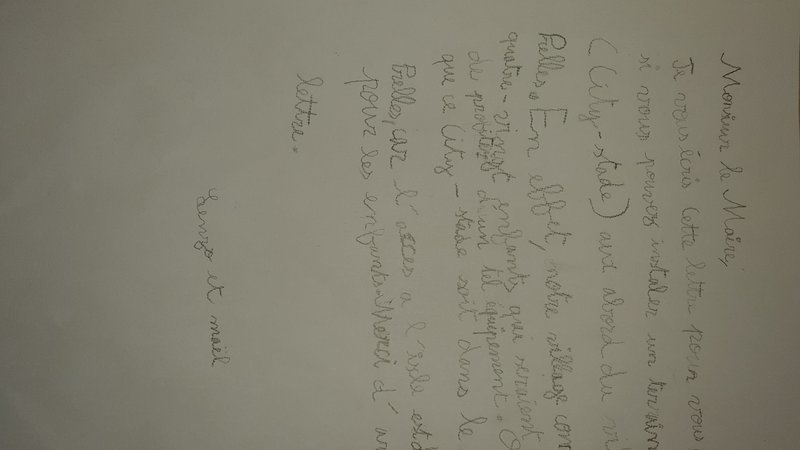 Monsieur le Maire,
Je vous écris cette lettre pour vous
si vous pouvez instaler un terrain
(City-stade) aux abord du vil
Prelles. En effet, notre village com
quatre-vingt enfants qui seraient
de profiter d'un tel équipement.
que ce City-stade soit dans le
Prelles, car l'acces a l'isle est
pour les enfants. Merci d'av
lettre.
Lenzo et maël